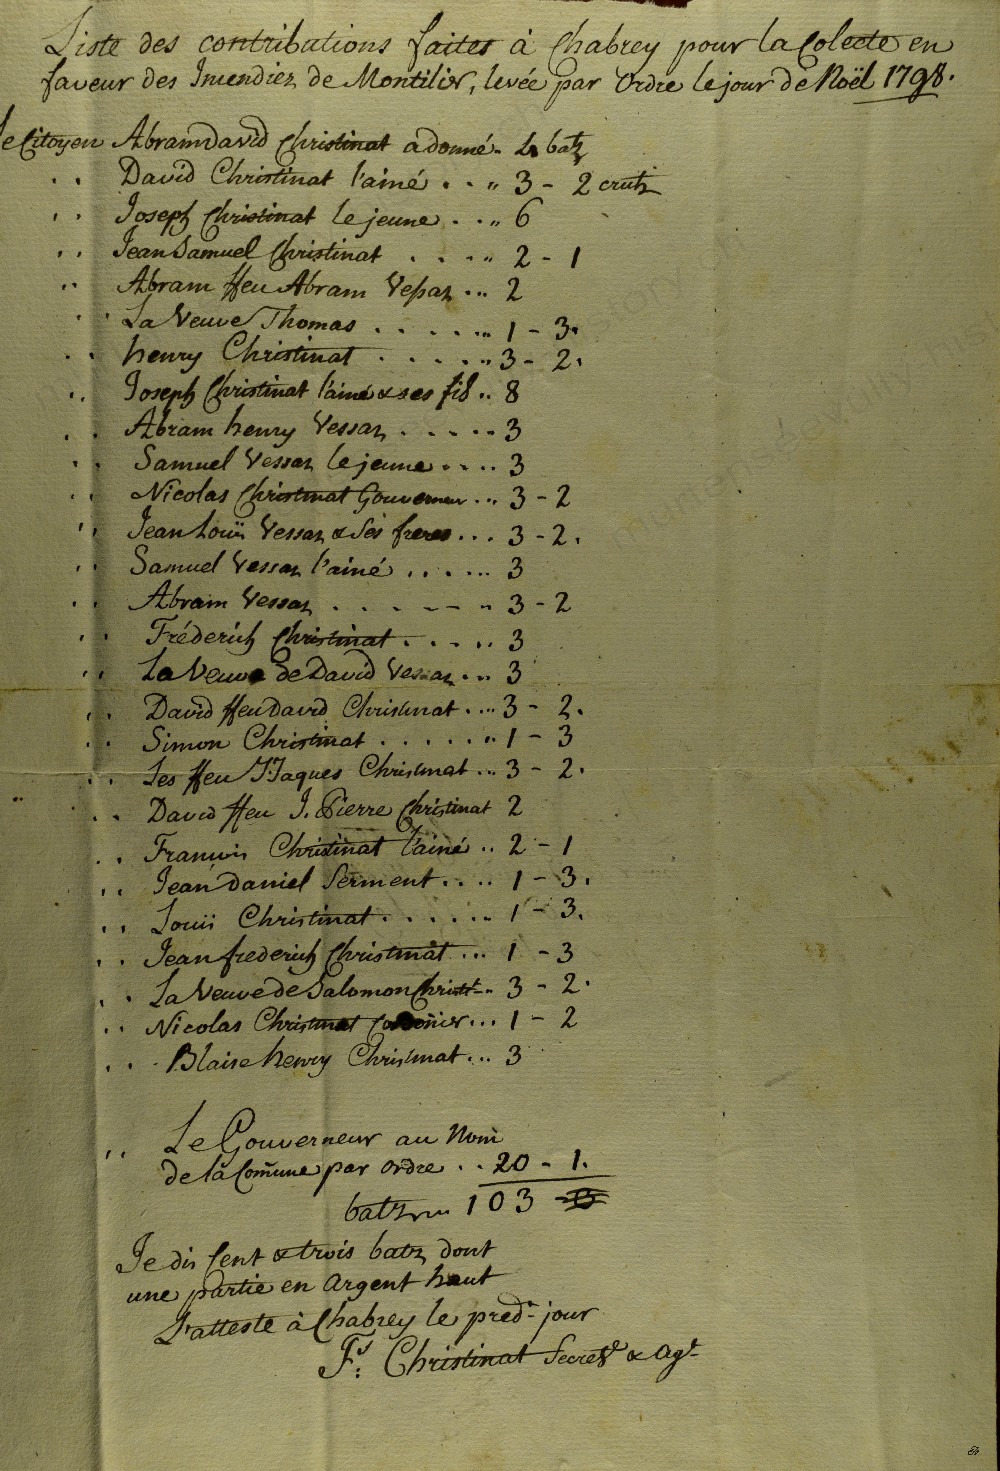 Liste des contributions faites à Chabrey pour la Colecte en
faveur des Incendiez de Montilier, levée par Ordre le jour de Noël 1798.
Le Citoyen Abram David Christinat a donné. 4 batz
. . David Christinat l'ainé . . „ 3 - 2 crutz
. . Joseph Christinat le jeune . . „ 6
. . Jean Samuel Christinat . . . „ 2 - 1
. . Abram ffeu Abram Vessaz ... 2
. . La Veuve Thomas . . . . . „ 1 - 3.
. . henry Christinat . . . . „ 3 - 2.
. . Joseph Christinat l'ainé & ses fils .. 8
. . Abram henry Vessaz . . . . . 3
. . Samuel Vessaz le jeune . . . . 3
. . Nicolas Christinat Gouverneur ... 3 - 2
. . Jean Louïs Vessaz & Ses freres ... 3 - 2.
. . Samuel Vessaz l'ainé ...... 3
. . Abram Vessaz . . . - - „ 3 - 2
. . Fréderich Christinat . . . . . 3
. . La Veuve de David Vessaz ... 3
. . David ffeu David Christinat . ... 3 - 2.
. . Simon Christinat . . . . . . „ 1 - 3
. . Les ffeu J. Jaques Christinat ... 3 - 2.
. . David ffeu J. Pierre Christinat 2
. . Francois Christinat l'ainé .. 2 - 1
. . Jean Daniel Serment . . . . 1 - 3.
. . Louïs Christinat . . . . . . 1 - 3.
. . Jean frederich Christinat ... 1 - 3
. . La Veuve de Salomon Christt .. 3 - 2.
. . Nicolas Christinat ... 1 - 2
. . Blaise henry Christinat ... 3
„ Le Gouverneur au Nom
de la Com̄une par ordre . . 20 - 1.
batz 103
Je dis Cent & trois batz dont
une partie en Argent haut
L'atteste à Chabrey le predt jour
Fs: Christinat Secrete & agt